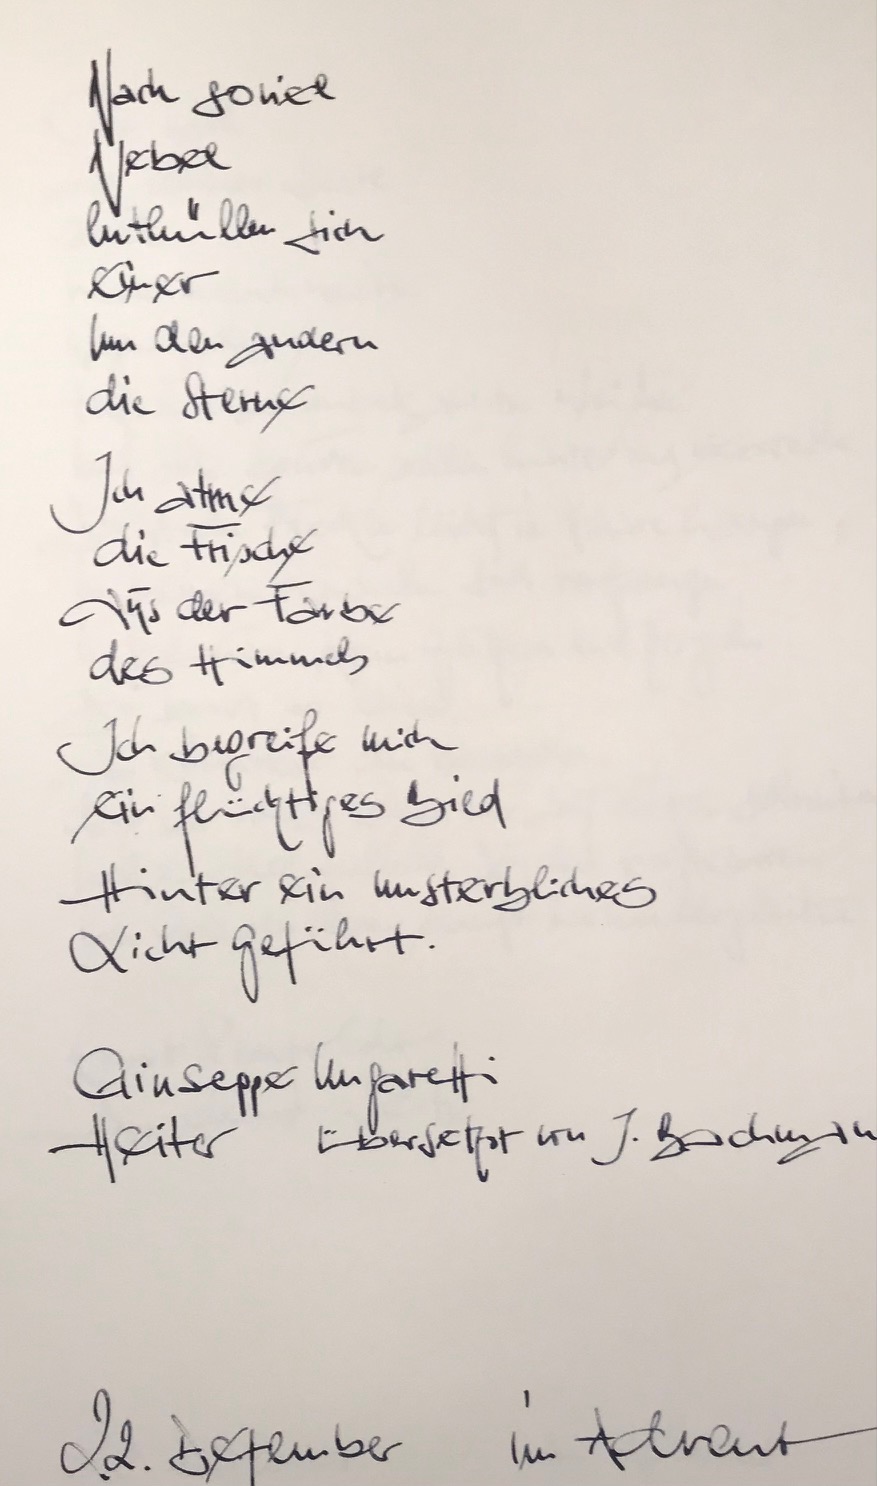 Nach soviel
Nebel
Enthüllen sich
einer
um den andern
die Sterne
Ich atme
die Frische
Aus der Farbe
des Himmels
Ich begreife mich
ein flüchtiges Bild
Hinter ein unsterbliches
Licht geführt.
Giuseppe Ungaretti
Heiter übersetzt von I. Bachmann
22. Dezember im Advent